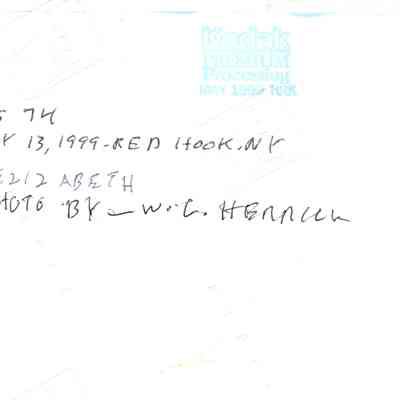 Kodak
PREMIUM
Processing
MAY 1999
74
Y 13, 1999-RED HOOK, NY
E212 ABETH
HOTO BY - W.C. HERRICK